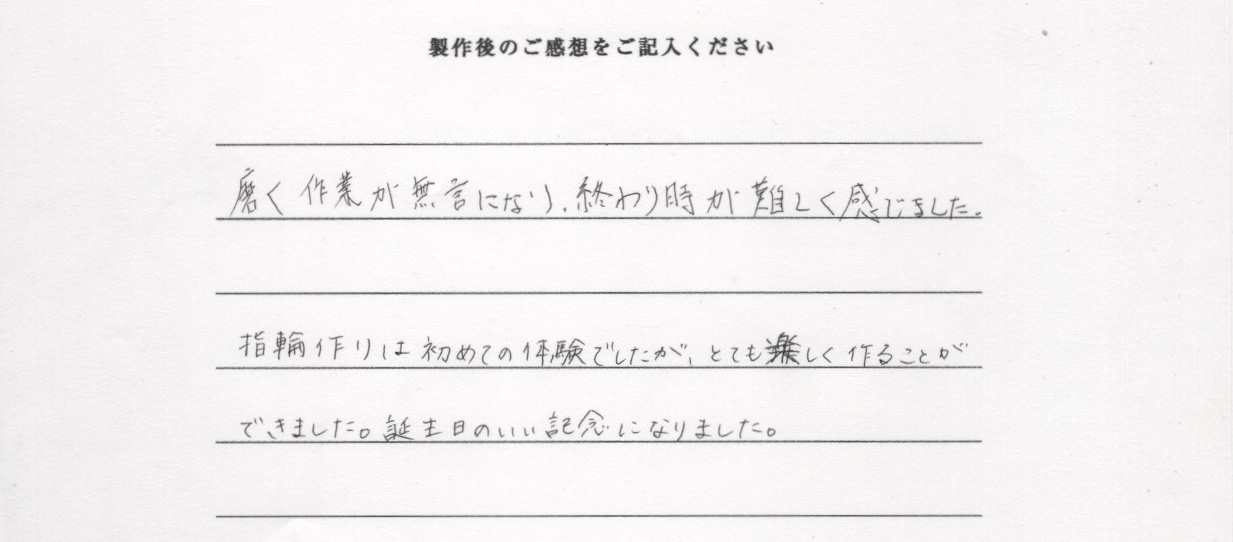 製作後のご感想をご記入ください
磨く作業が無言になり、終わり時が難しく感じました。
指輪作りは初めての体験でしたが、とても楽しく作ることが
できました。誕生日のいい記念になりました。